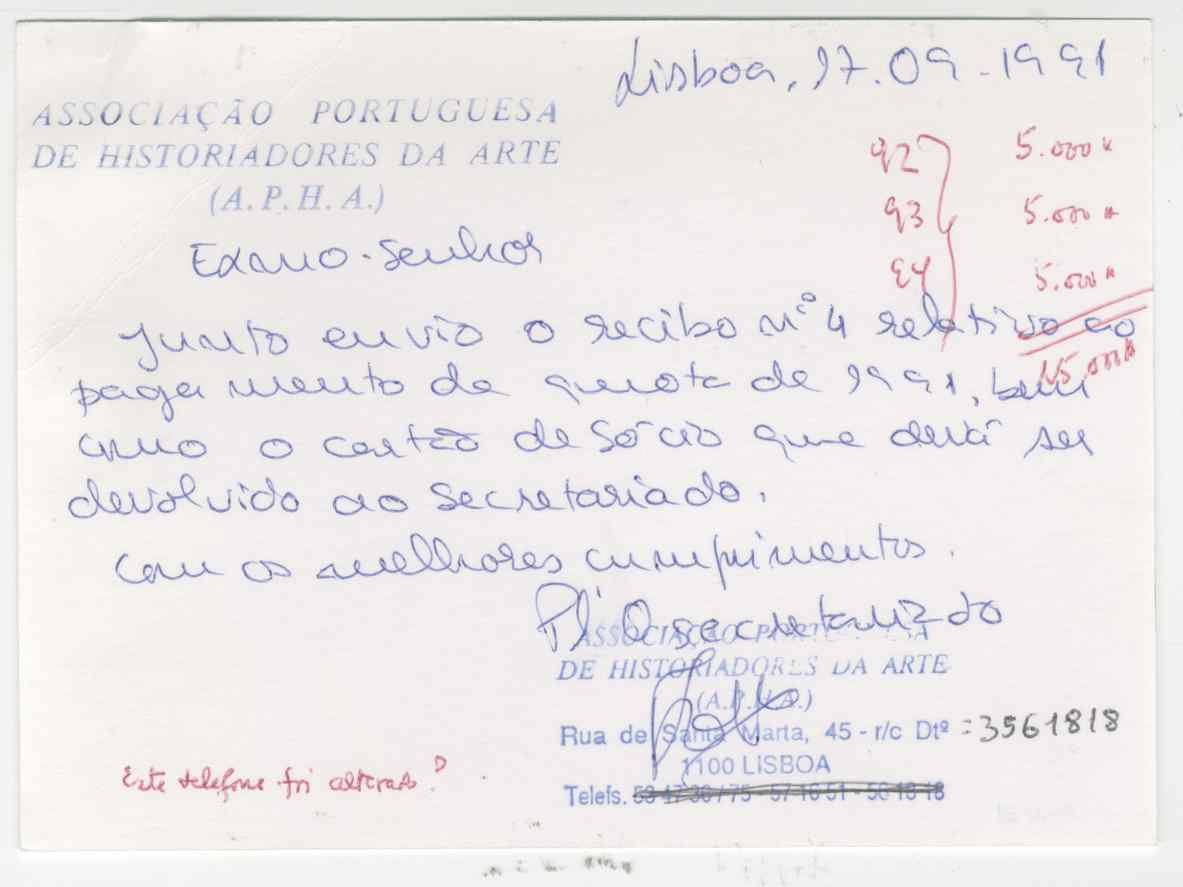 Lisboa, 17.09.1991
ASSOCIAÇÃO PORTUGUESA
DE HISTORIADORES DA ARTE
(A.P.H.A.)
92 5.000
93 5.000
94 5.000
15.000
Exmo. Senhor
Junto envio o recibo nº 4 relativo ao
pagamento da quota de 1991, bem
como o cartão de sócio que deverá ser
devolvido ao Secretariado.
Com os melhores cumprimentos.
P'lO secretariado
ASSOCIAÇÃO
DE HISTORIADORES DA ARTE
(A.P.H.A.)
Rua de Santa Marta, 45 - r/c Dtº = 3561818
1100 LISBOA
Telefs.
Este telefone foi alterado?